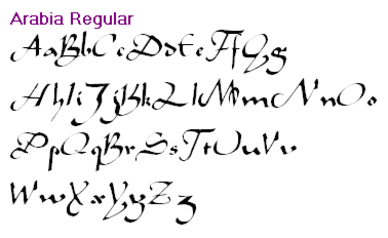 Arabia Regular
AaBbCcDdEeFfGg
HhIiJjKkLlMmNnOo
PpQqRrSsTtUuVv
WwXxYyZz